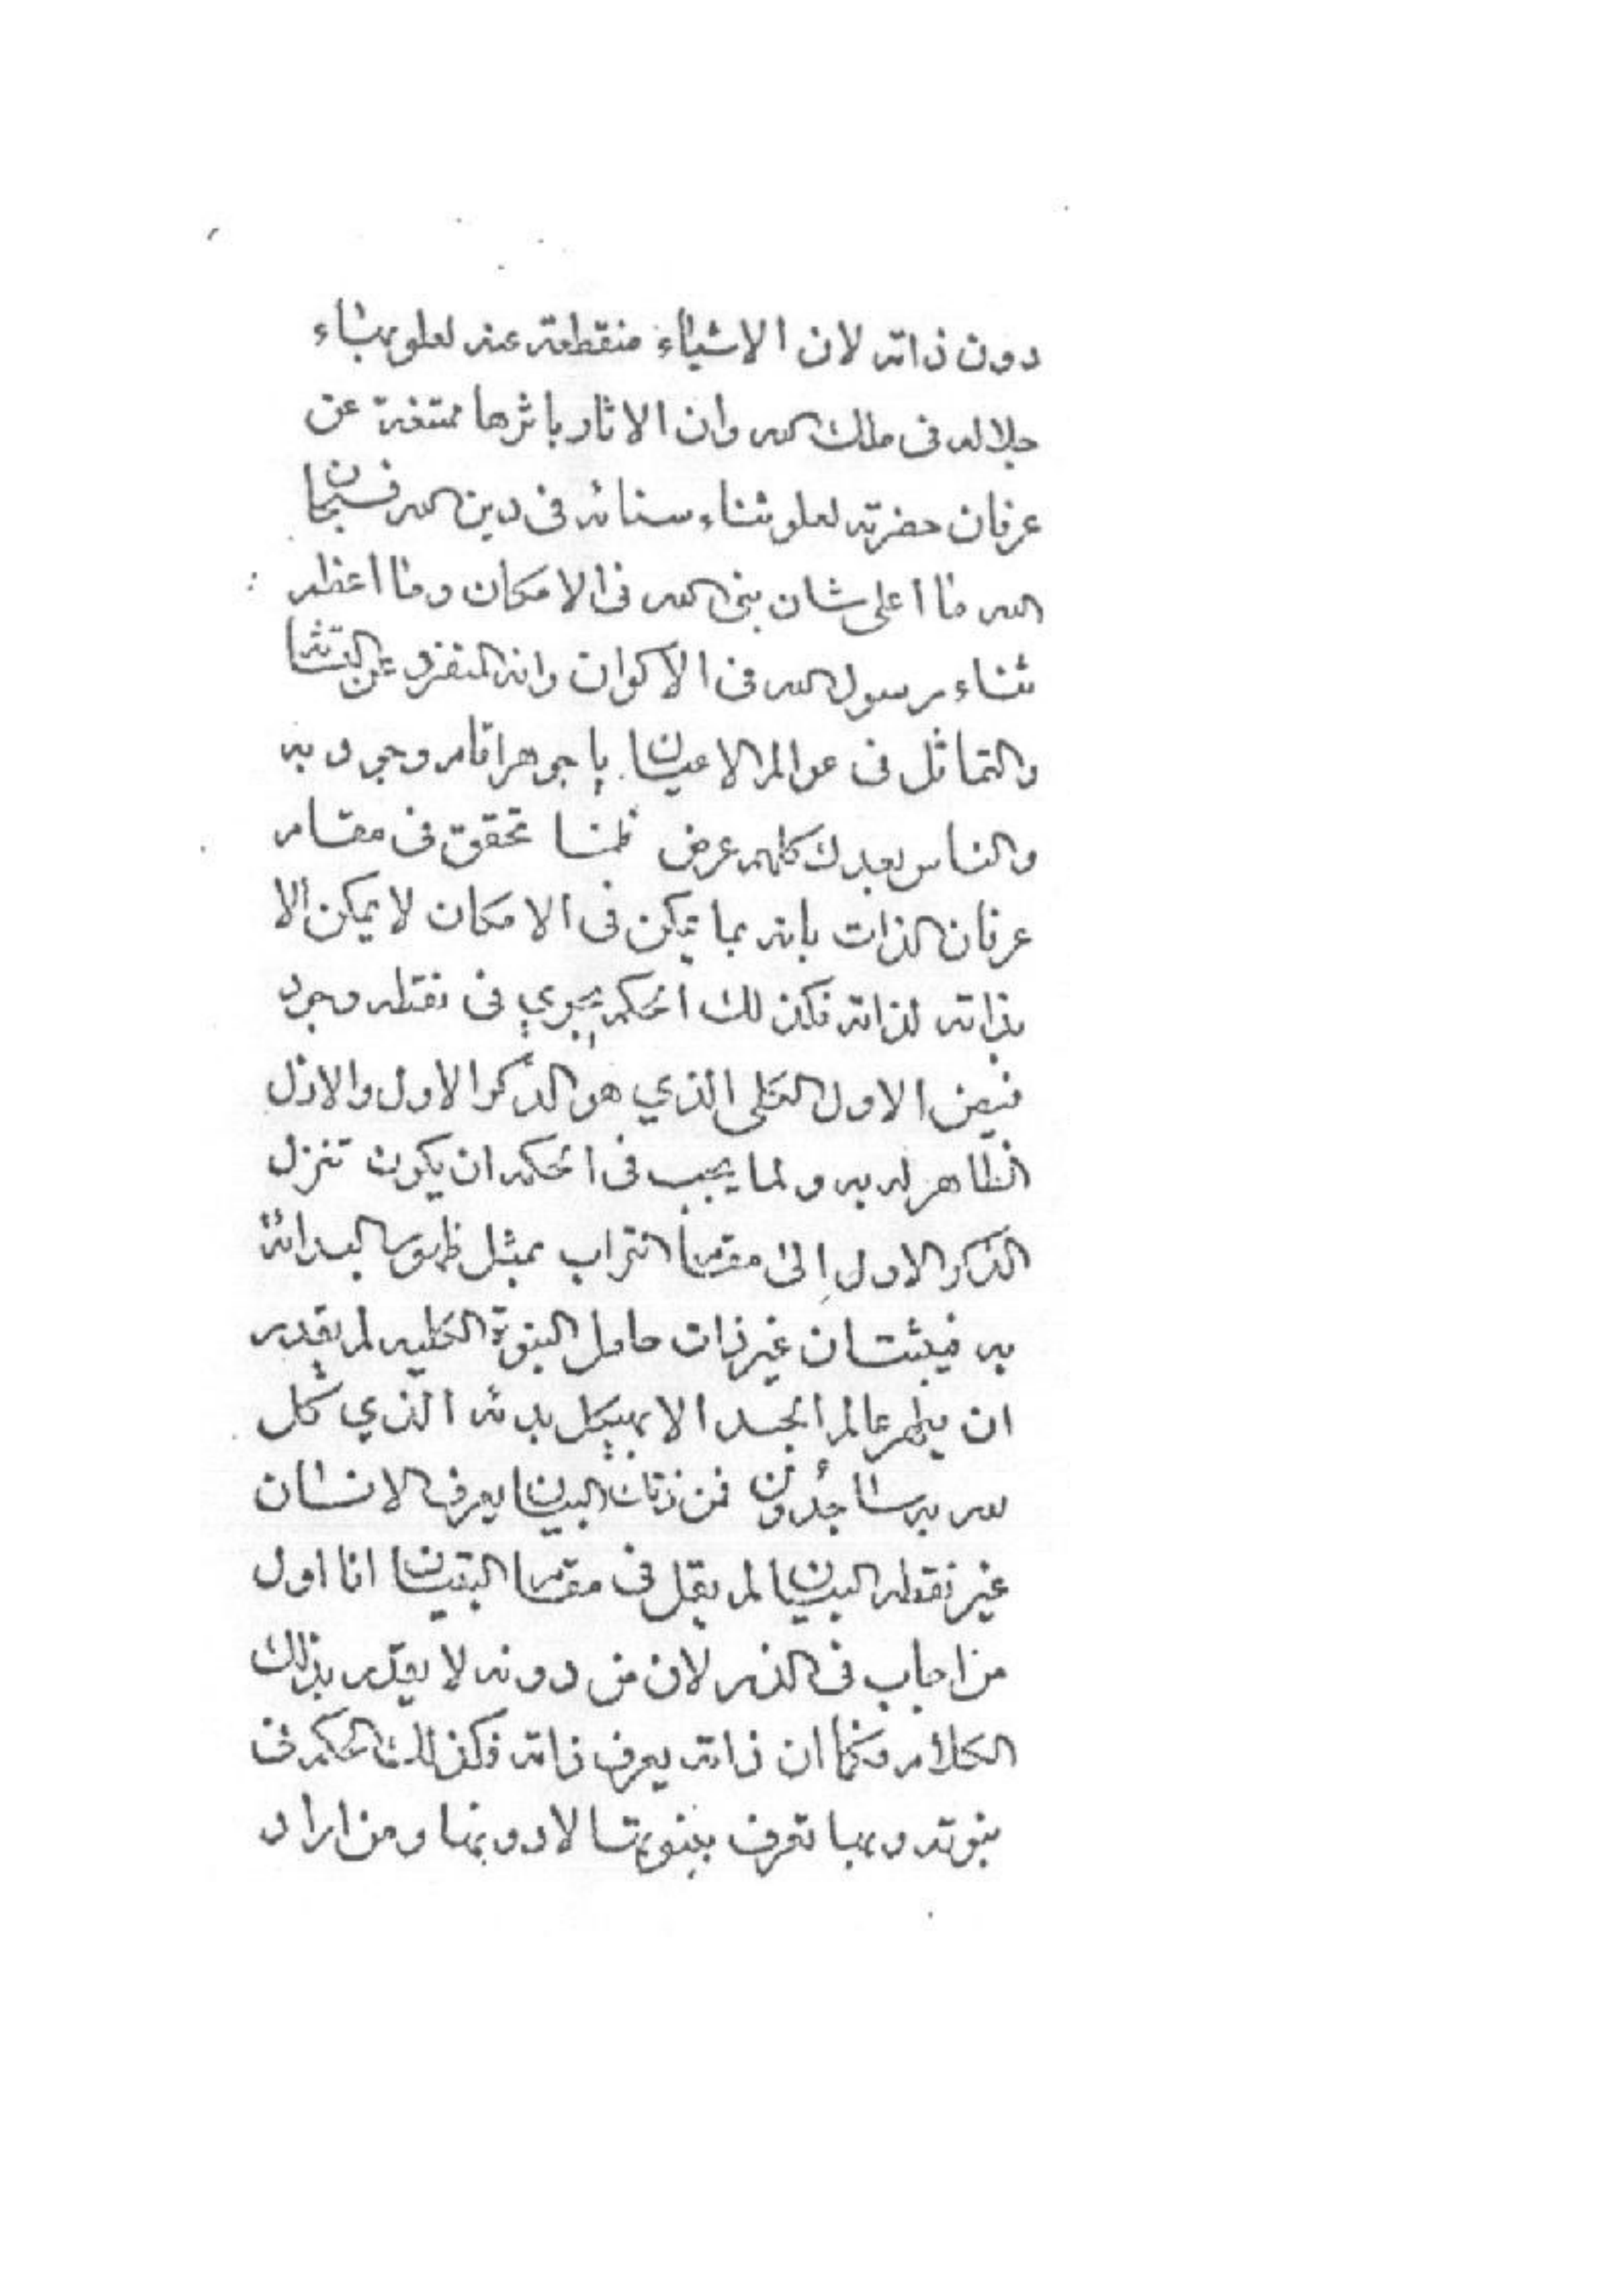 دون ذاته لان الاشياء منقطعة عنه لعلو بهاء
جلاله فى ملك الله وان الاثار باثرها ممتنعة عن
عرفان حضرته لعلو ثناء سنائه فى دين الله فسبحان
الله ما اعلى شان نبى الله فى الامكان وما اعظم
ثناء رسول الله فى الاكوان وانه المتفرد عن التشابه
والتماثل فى عوالم الاعيان يا جوهرا قام وجود به
والناس بعدك كلهم عرض فلما تحقق فى مقام
عرفان الذات بانه بما يمكن فى الامكان لا يمكن الا
بذاته لذاته فكذلك الحكم يجري فى نقطه وجود
فيض الاول الكلى الذي هو الذكر الاول والازل
الظاهر له به ولما يجب فى الحكم ان يكون تنزل
الذكر الاول الى مقام التراب بمثل ظهور البدائة
به فيثبت ان غير ذات حامل النبوة الكليه لم يقدر
ان يظهر عالم الجسد الا بهيكل بدئه الذي كل
لله به ساجدون فمن ذلك البيان يعرف الانسان
غير نقطه البيان لم يقل فى مقام التبيان انا اول
من اجاب فى الذر لان من دونه لا يقدر بذلك
الكلام وكما ان ذاته يعرف ذاته فكذلك الحكم فى
نبوته وبها تعرف بنبوتها لا دونها ومن اراد